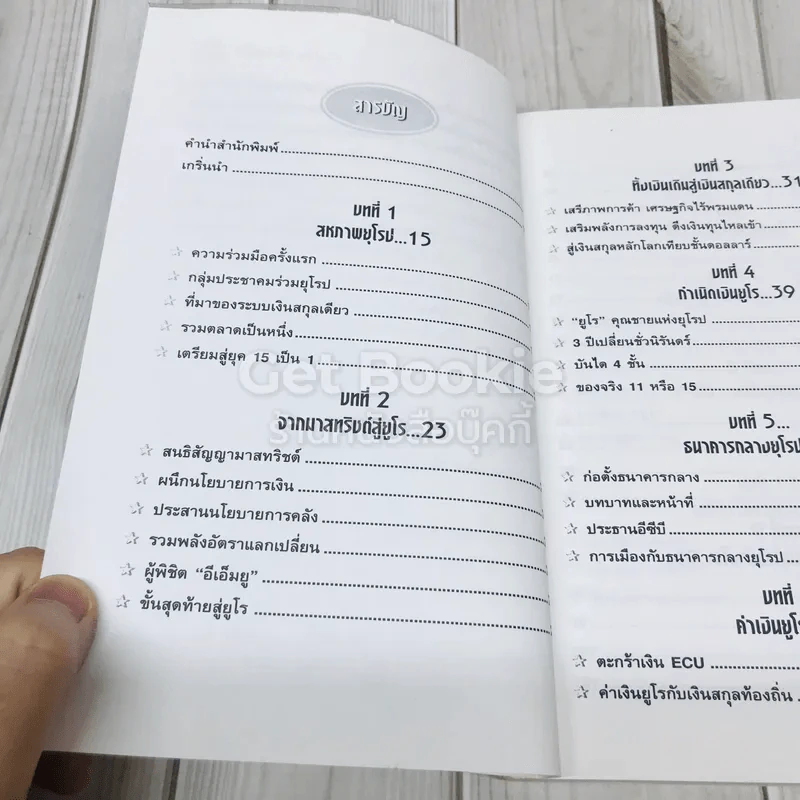 สารบัญ
คำนำสำนักพิมพ์
เกริ่นนำ
บทที่ 1
สหภาพยุโรป...15
ความร่วมมือครั้งแรก
กลุ่มประชาคมร่วมยุโรป
ที่มาของระบบเงินสกุลเดียว
รวมตลาดเป็นหนึ่ง
เตรียมสู่ยุค 15 เป็น 1
บทที่ 2
จากมาสทริชต์สู่ยูโร...23
สนธิสัญญามาสทริชต์
ผนึกนโยบายการเงิน
ประสานนโยบายการคลัง
รวมพลังอัตราแลกเปลี่ยน
ผู้พิชิต “อีเอ็มยู”
ขั้นสุดท้ายสู่ยูโร
บทที่ 3
ทิ้งเงินเดิมสู่เงินสกุลเดียว...31
เสรีภาพการค้า เศรษฐกิจไร้พรมแดน
เสริมพลังการลงทุน ดึงเงินทุนไหลเข้า
สู่เงินสกุลหลักโลกเทียบชั้นดอลลาร์
บทที่ 4
กำเนิดเงินยูโร...39
“ยูโร” คุณชายแห่งยุโรป
3 ปีเปลี่ยนชั่วนิรันดร์
บันได 4 ชั้น
ของจริง 11 หรือ 15
บทที่ 5...
ธนาคารกลางยุโรป
ก่อตั้งธนาคารกลาง
บทบาทและหน้าที่
ประธานอีซีบี
การเมืองกับธนาคารกลางยุโรป
บทที่
ค่าเงินยูโร
ตะกร้าเงิน ECU
ค่าเงินยูโรกับเงินสกุลท้องถิ่น
Get Bookie
ร้านหนังสือบุ๊คกี้